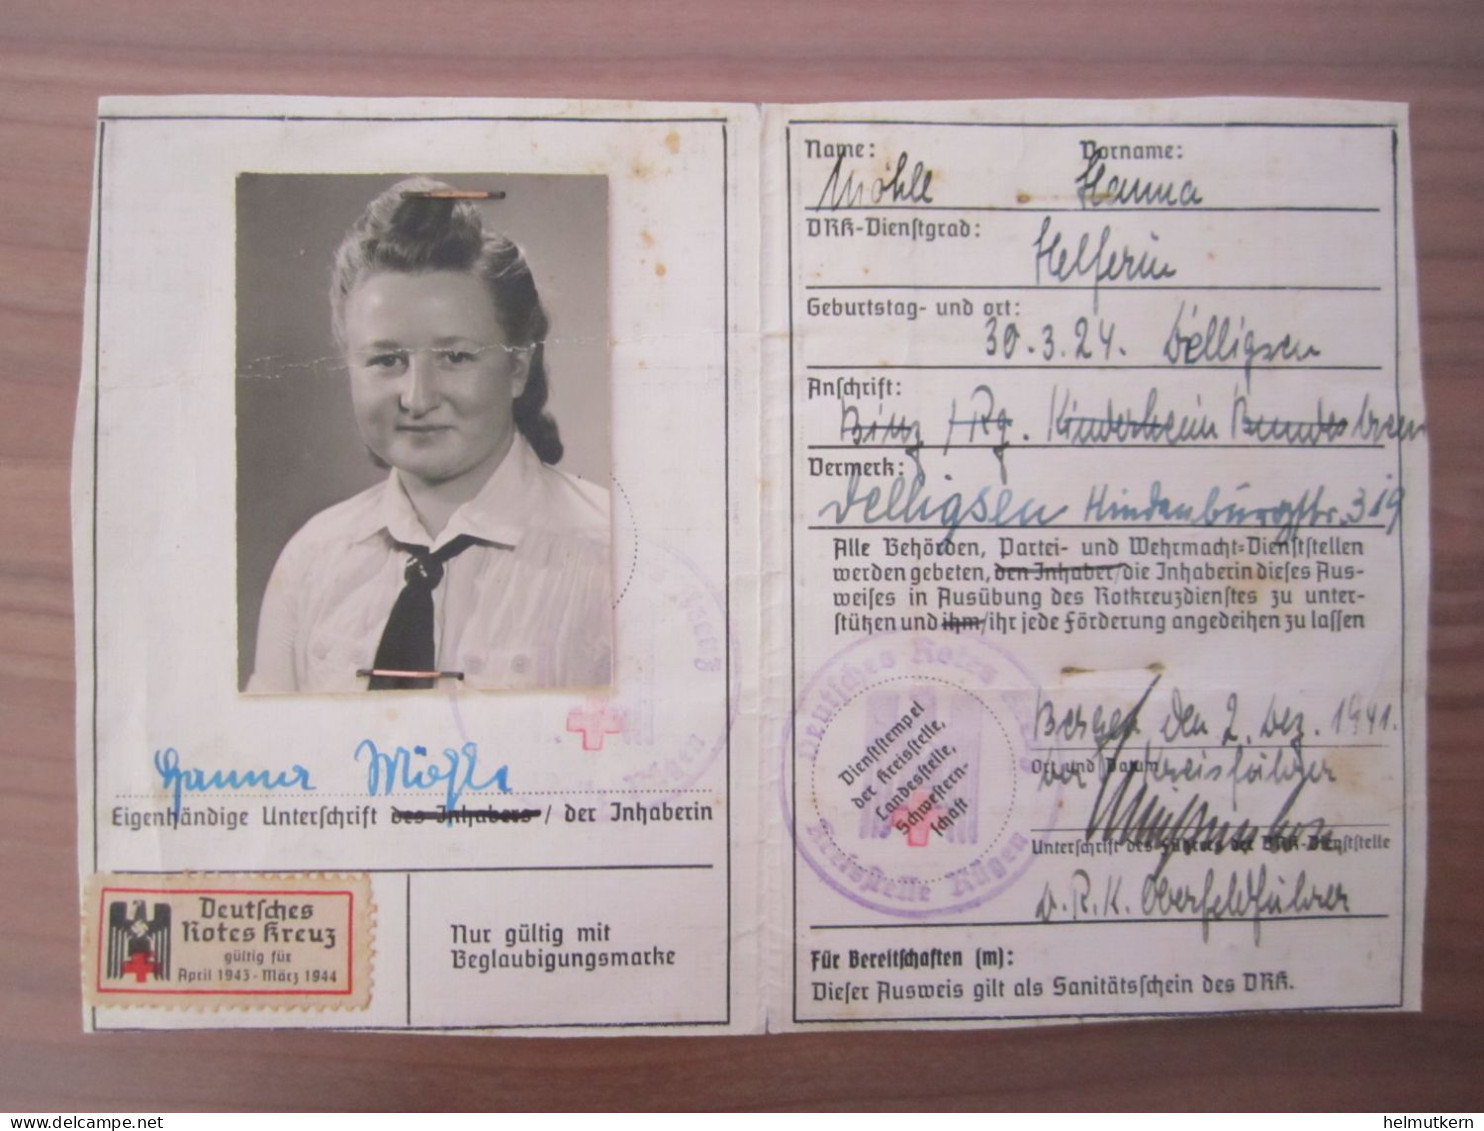 Hanna Möhle
Eigenhändige Unterschrift des Inhabers / der Inhaberin
Deutsches
Rotes Kreuz
gültig für
April 1943 - März 1944
Nur gültig mit
Beglaubigungsmarke
Name: Vorname:
Möhle Hanna
DRK-Dienstgrad:
Helferin
Geburtstag- und ort:
30.3.24. Delligsen
Anschrift:
Binz / Rg. Kinderheim
Vermerk:
Delligsen Hindenburgstr. 319
Alle Behörden, Partei- und Wehrmacht-Dienststellen
werden gebeten, den Inhaber/die Inhaberin dieses Aus-
weises in Ausübung des Rotkreuzdienstes zu unter-
stützen und ihm/ihr jede Förderung angedeihen zu lassen
Deutsches Rotes Kreuz
Dienststempel
der Kreisstelle,
Landesstelle,
Schwestern-
schaft
Kreisstelle Rügen
Bergen den 2. Dez. 1941.
Ort und Datum
der Kreisführer
Unterschrift des Führers der DRK-Dienststelle
D.R.K. Oberfeldführer
Für Bereitschaften (m):
Dieser Ausweis gilt als Sanitätsschein des DRK.
delcampe.net
helmutkern